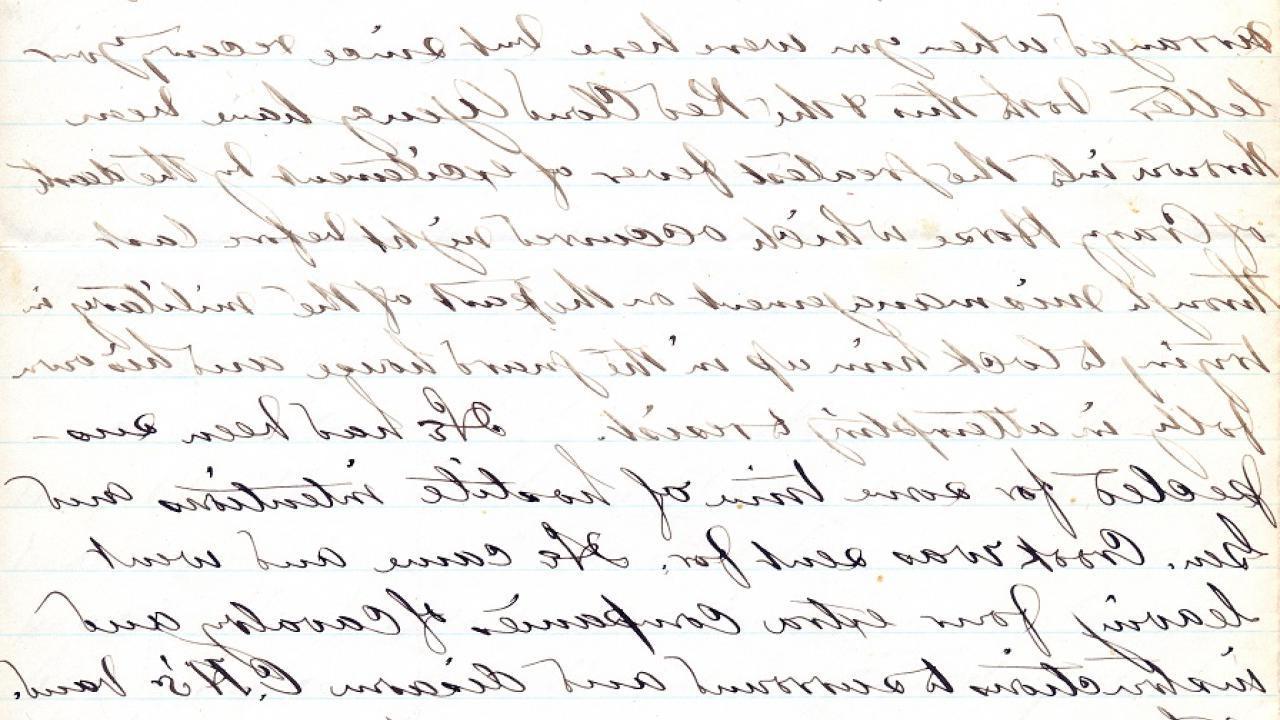 arranged when you were here but since receiving your
letter both this & the Red Cloud Agency have been
thrown into the greatest fever of excitement by the death
of Crazy Horse which occurred night before last
through mismanagement on the part of the military in
trying to lock him up in the guard house and his own
folly in attempting to resist. He had been sus-
pected for some time of hostile intentions and
Gen. Crook was sent for. He came and went
leaving four extra companies of Cavalry and
instructions to surround and disarm C.H's band.